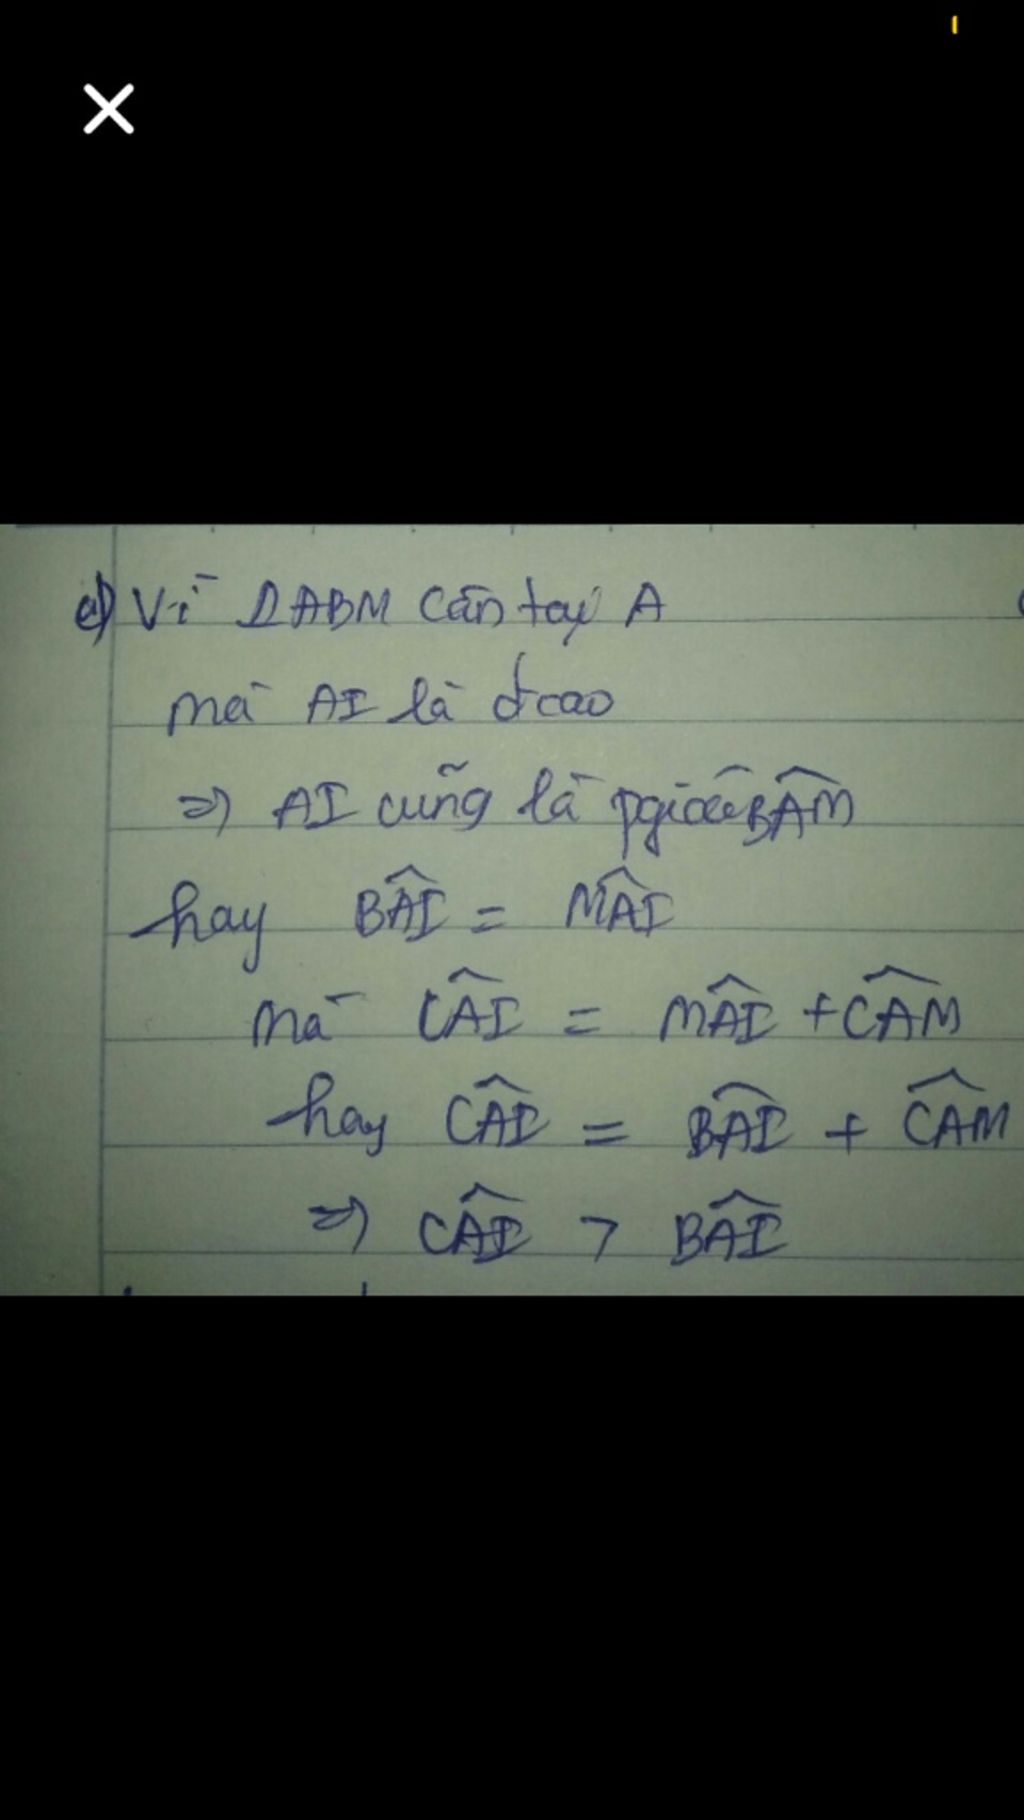 c) Vì ΔABM cân tại A
mà AI là đcao
=> AI cũng là pgiác BAM̂
hay BÂI = MÂI
mà CÂI = MÂI + CÂM
hay CÂI = BÂI + CÂM
=> CÂI > BÂI